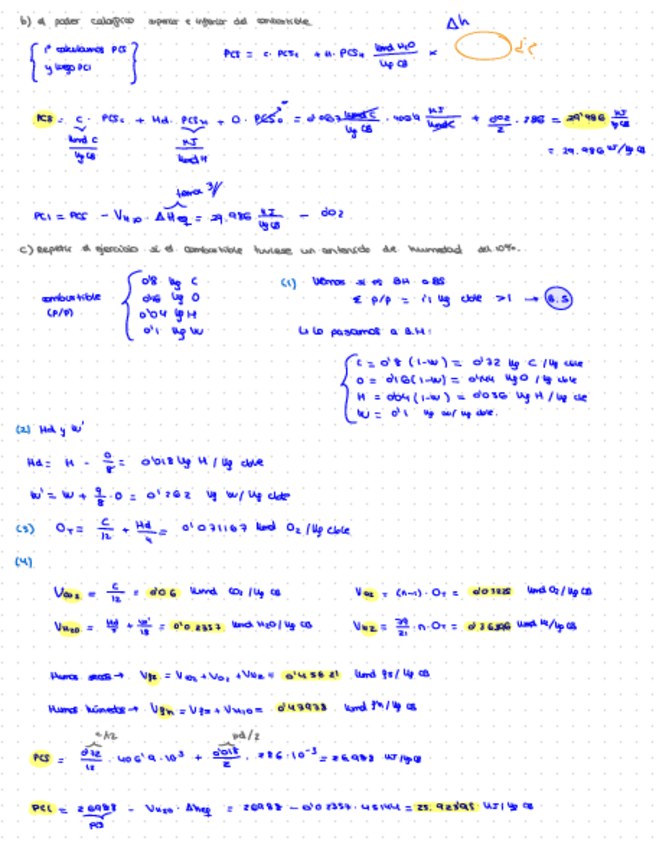 b) el poder calorífico superior e inferior del combustible
Δh
1º calculamos PCS
y luego PCI
PCS = c · PCSc + H · PCSH kmol H2O / kg CB ×
PCS = C · PCSc + Hd · PCSH + O · = 0'067 kmol C / kg CB · 406'9 kJ / kmol C + 0'02 / 2 · 286 = 29'986 kJ / kg CB
kmol C / kg CB
kJ / kmol H
= 29.986 kJ/kg CB
tema 3//
PCI = PCS - VH2O · ΔHeq = 29.986 kJ / kg CB - 0'02
c) Repetir el ejercicio si el combustible tuviese un contenido de humedad del 10%.
combustible
(P/P)
0'8 kg C
0'16 kg O
0'04 kg H
0'1 kg W
(1) Vemos si es BH o BS
Σ P/P = 1'1 kg cble > 1 → B.S
Lo pasamos a B.H:
C = 0'8 (1-w) = 0'72 kg C / kg cble
O = 0'16 (1-w) = 0'144 kg O / kg cble
H = 0'04 (1-w) = 0'036 kg H / kg cble
W = 0'1 kg w / kg cble.
(2) Hd y w'
Hd = H - O/8 = 0'018 kg H / kg cble
w' = w + 9/8 · O = 0'262 kg w / kg cble
(3) OT = C/12 + Hd/4 = 0'071167 kmol O2 / kg cble
(4)
VCO2 = C/12 = 0'06 kmol CO2 / kg CB
VO2 = (n-1) · OT = kmol O2 / kg CB
VH2O = Hd/2 + w'/18 = 0'02357 kmol H2O / kg CB
VN2 = 79/21 · n · OT = kmol N2 / kg CB
Humos secos → Vfs = VCO2 + VO2 + VN2 = 0'45621 kmol fs / kg CB
Humos húmedos → Vfh = Vfs + VH2O = kmol fh / kg CB
c/12
Hd/2
PCS = 0'72/12 · 406'9 · 10³ + 0'018/2 · 286 · 10⁻³ = 26988 kJ/kg CB
PCI = 26988 - VH2O · Δheq = 26988 - 0'02357 · 45144 = 25.923'95 kJ / kg CB
PCS